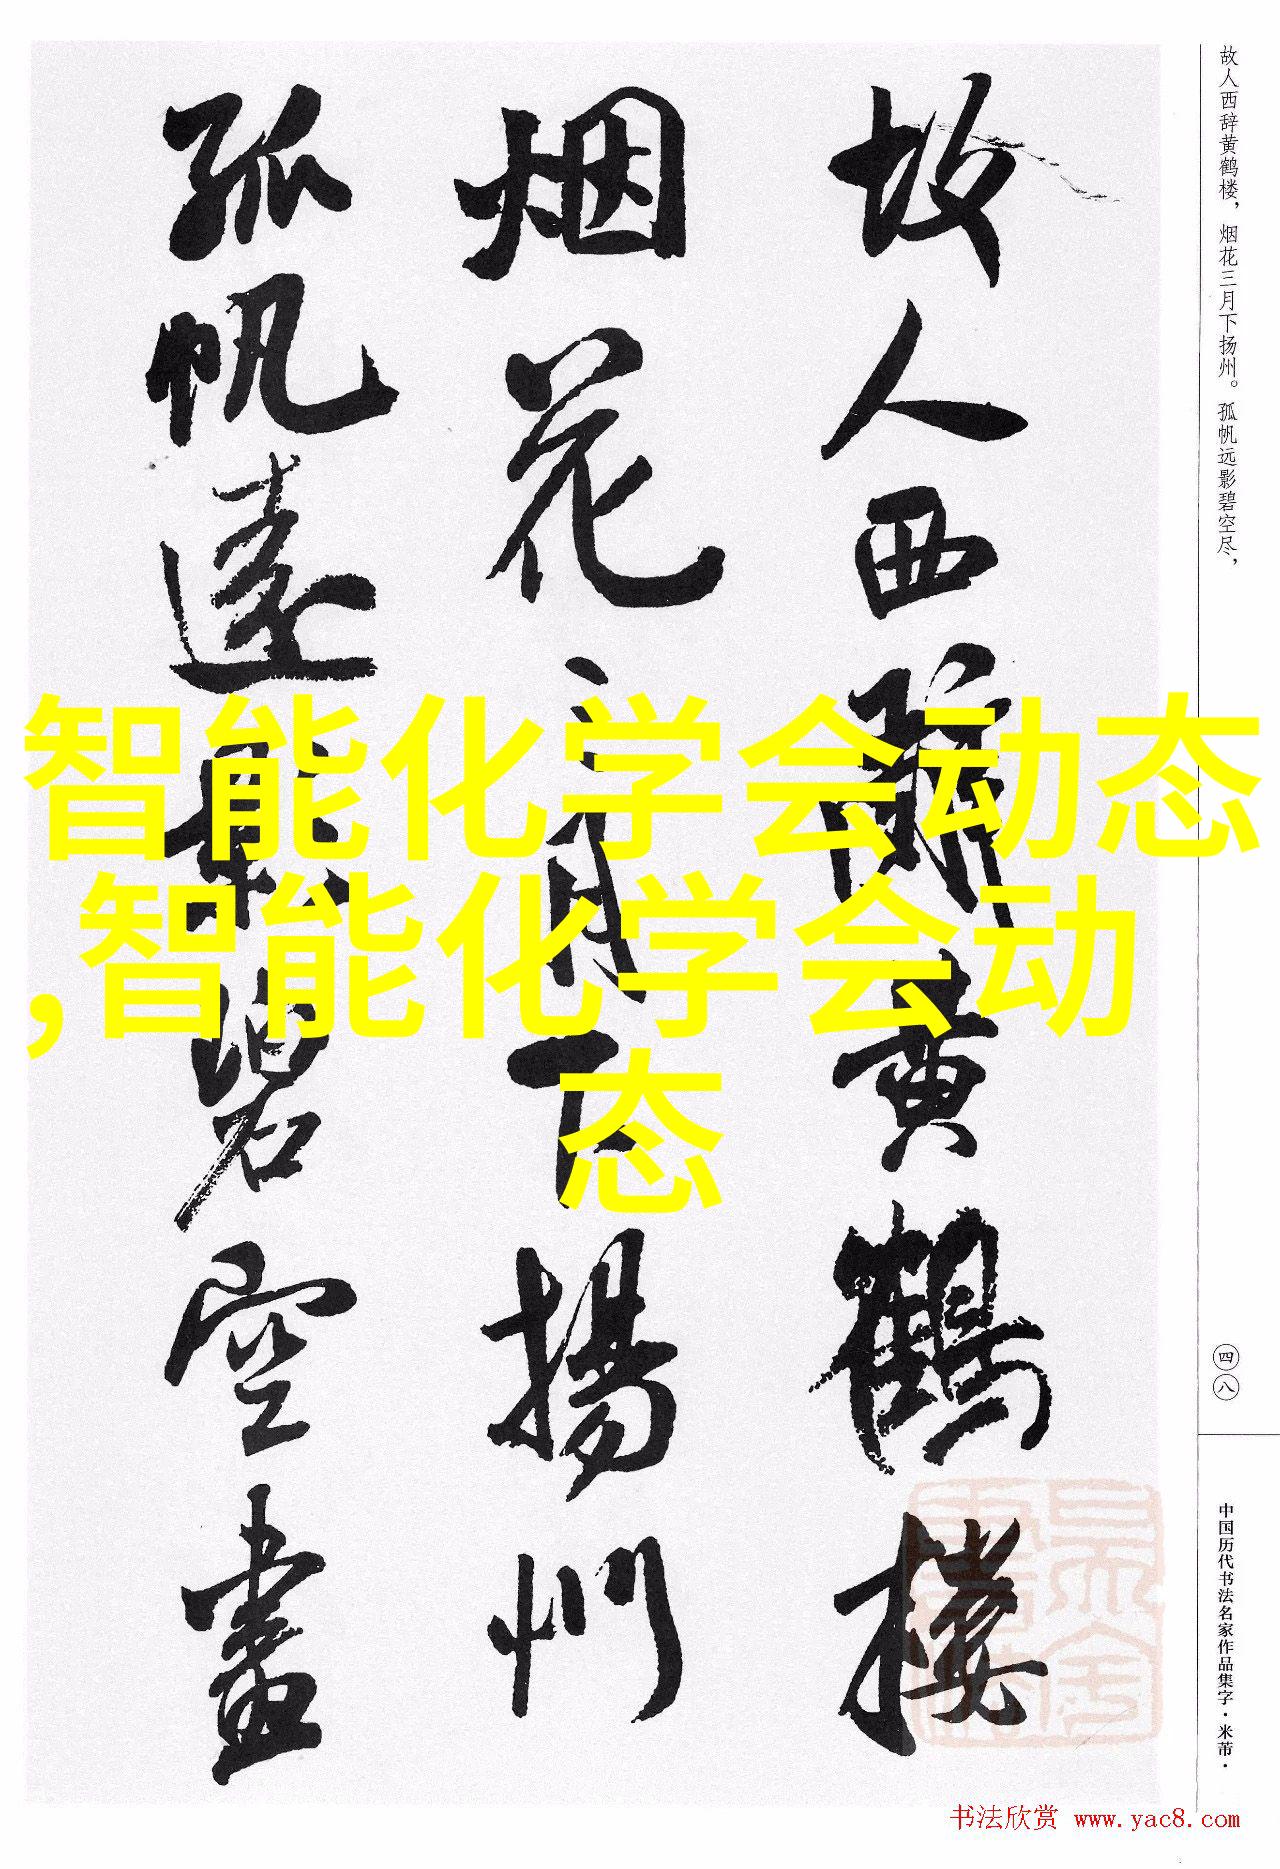 故人西辞黄鹤楼，烟花三月下扬州。孤帆远影碧空尽，
故人西辭黄鶴樓
烟花三月下揚州
孤帆遠影碧空盡
智能化学会动态
,智能化学会动
态
四八
中国历代书法名家作品集字·米芾·
书法欣赏 www.yac8.com